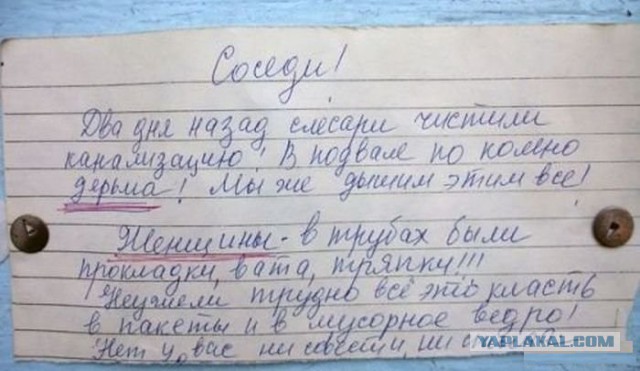 Соседи!
Два дня назад слесари чистили
канализацию! В подвале по колено
дерьма! Мы же дышим этим все!
Женщины - в трубах были
прокладки, вата, тряпки!!!
Неужели трудно всё это класть
в пакеты и в мусорное ведро!
Нет у вас ни совести, ни
YAPLAKAL.COM